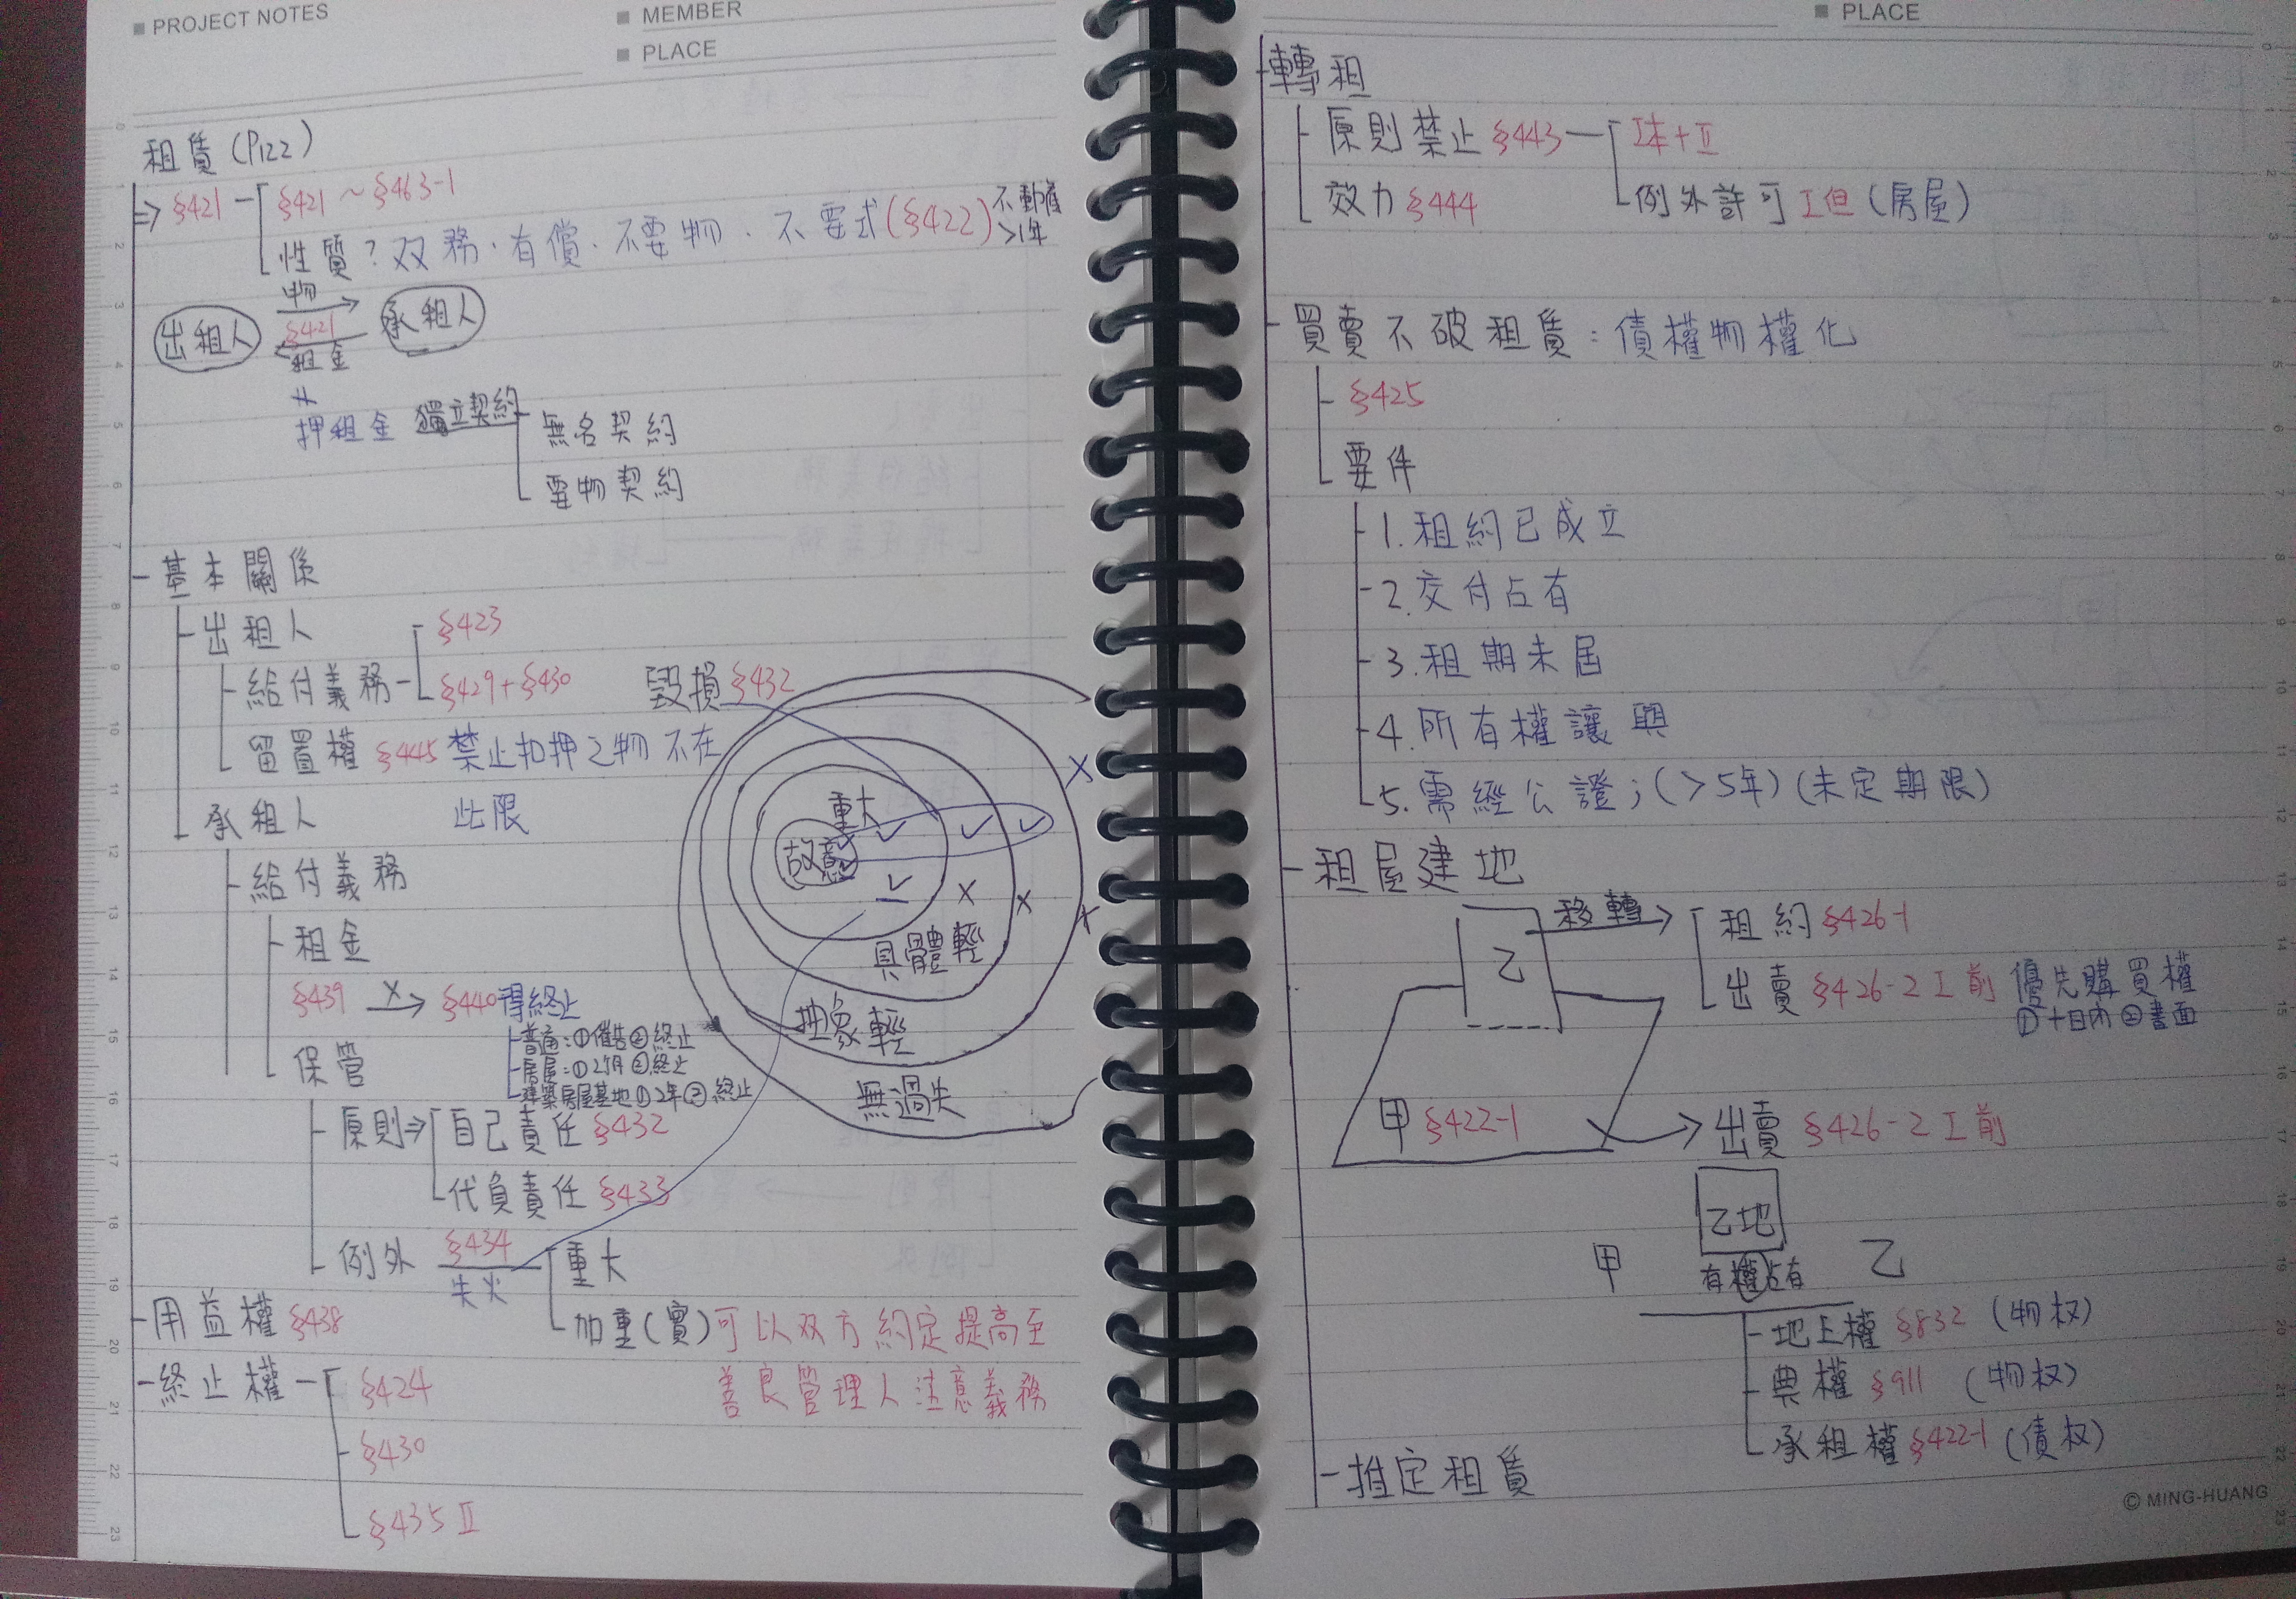 PROJECT NOTES
MEMBER
PLACE
租賃(P122)
⇒ §421
§421 ~ §463-1
性質？双務．有償．不要物．不要式(§422) 不動產 >1年
出租人
物
§421
租金
承租人
押租金 獨立契約
無名契約
要物契約
基本關係
出租人
給付義務
§423
§429+§430
留置權 §445 禁止扣押之物 不在
此限
承租人
給付義務
租金
§439 X→ §440 得終止
普通：①催告②終止
房屋：①2個月②終止
建築房屋基地①2年②終止
保管
原則⇒
自己責任 §432
代負責任 §433
例外 §434
失火
重大
加重(實) 可以双方約定提高至
善良管理人注意義務
毀損 §432
故意
重大
✓ ✓ ✓ X
✓ X X X
具體輕
抽象輕
無過失
用益權 §438
終止權
§424
§430
§435 II
PLACE
轉租
原則禁止 §443
I本+II
例外許可 I但 (房屋)
效力 §444
買賣不破租賃：債權物權化
§425
要件
1.租約已成立
2.交付占有
3.租期未屆
4.所有權讓與
5.需經公證；(>5年)(未定期限)
租屋建地
乙
移轉
租約 §426-1
出賣 §426-2 I 前 優先購買權
①十日內 ②書面
甲 §422-1
出賣 §426-2 I 前
乙地
甲 有權占有 乙
地上權 §832 (物权)
典權 §911 (物权)
承租權 §422-1 (債权)
推定租賃
© MING-HUANG